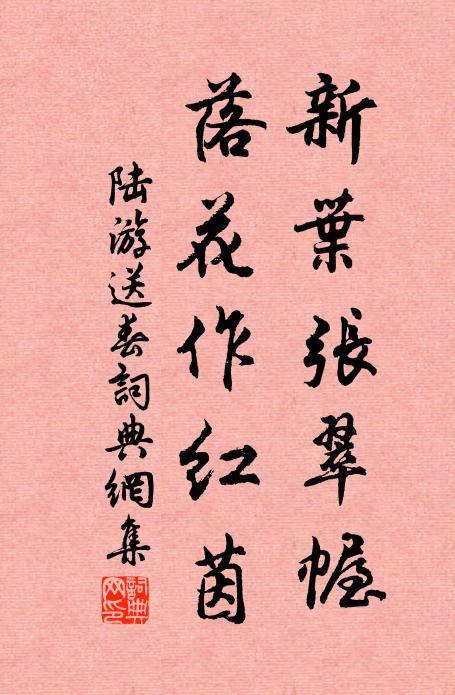 新葉張翠幄
落花作紅茵
陸游送春詞典網集
詞典網印